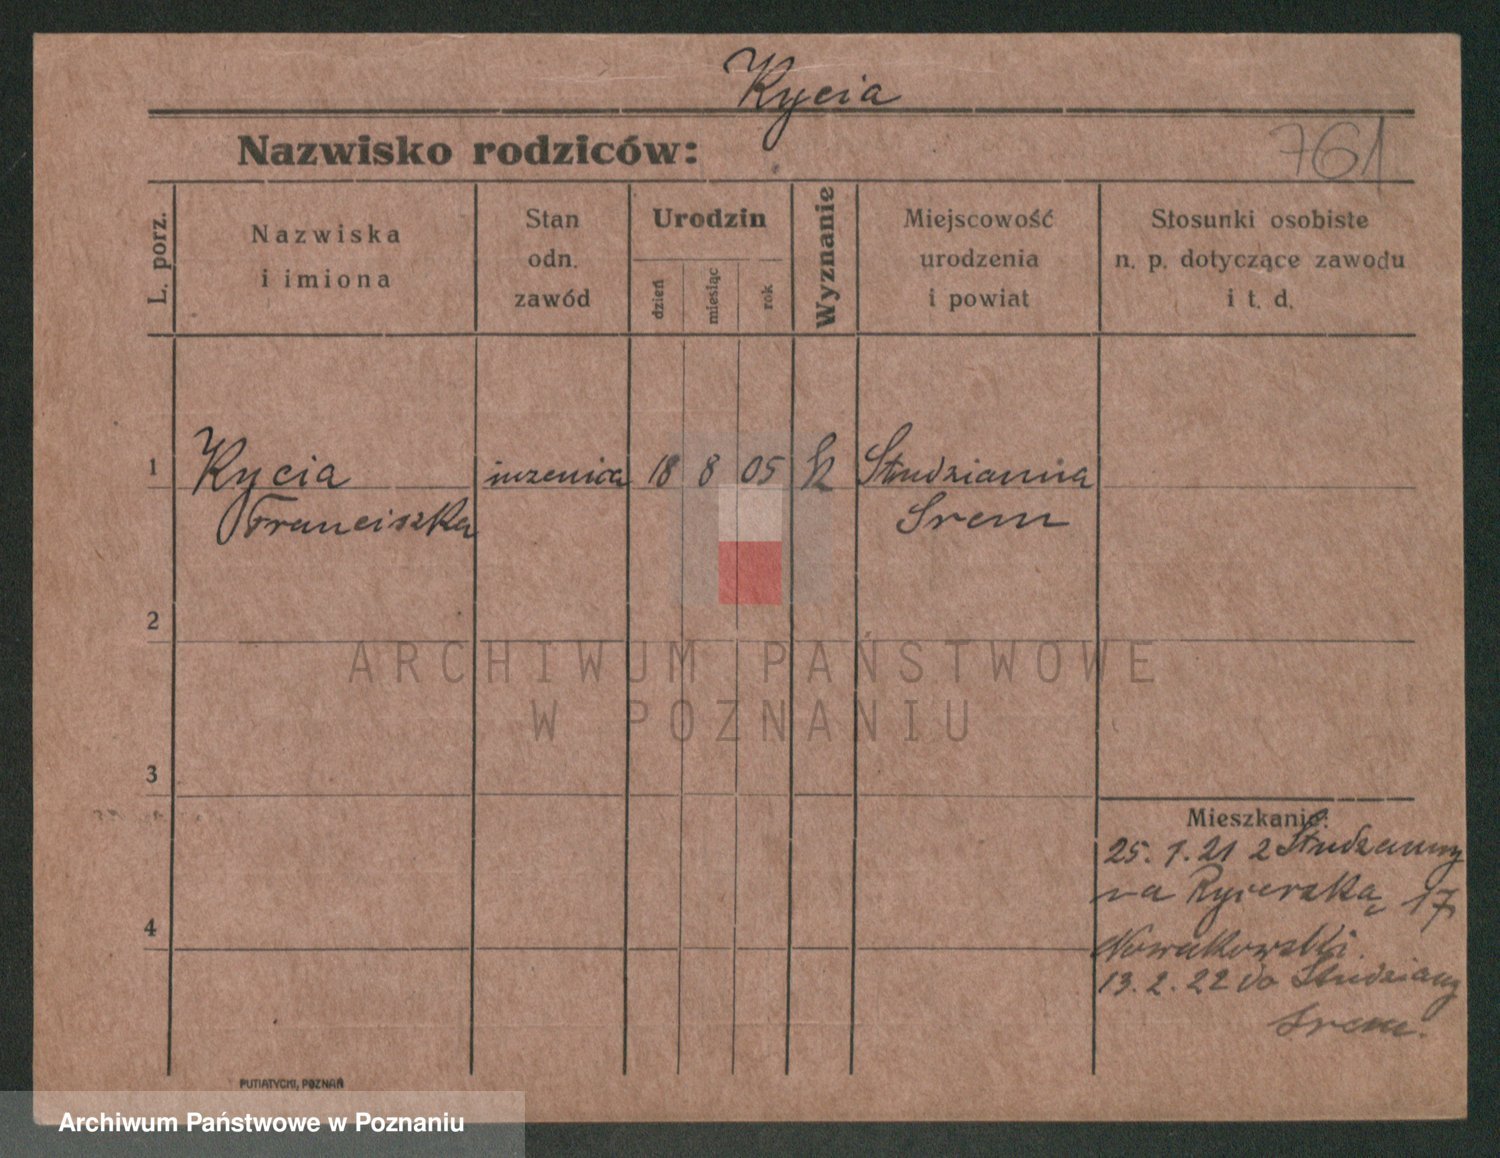 Kycia
Nazwisko rodziców:
761
L. porz.
Nazwiska
i imiona
Stan
odn.
zawód
Urodzin
dzień
miesiąc
rok
Wyznanie
Miejscowość
urodzenia
i powiat
Stosunki osobiste
n. p. dotyczące zawodu
i t. d.
1
Kycia
Franciszka
uczenica
18 8 05
Studzianna
Srem
2
ARCHIWUM PAŃSTWOWE
W POZNANIU
3
Mieszkanie:
25. 1. 21 z
na Rycerską 17
Nowakowski.
4
13. 2. 22 do
Srem.
PUTIATYCKI, POZNAŃ
Archiwum Państwowe w Poznaniu